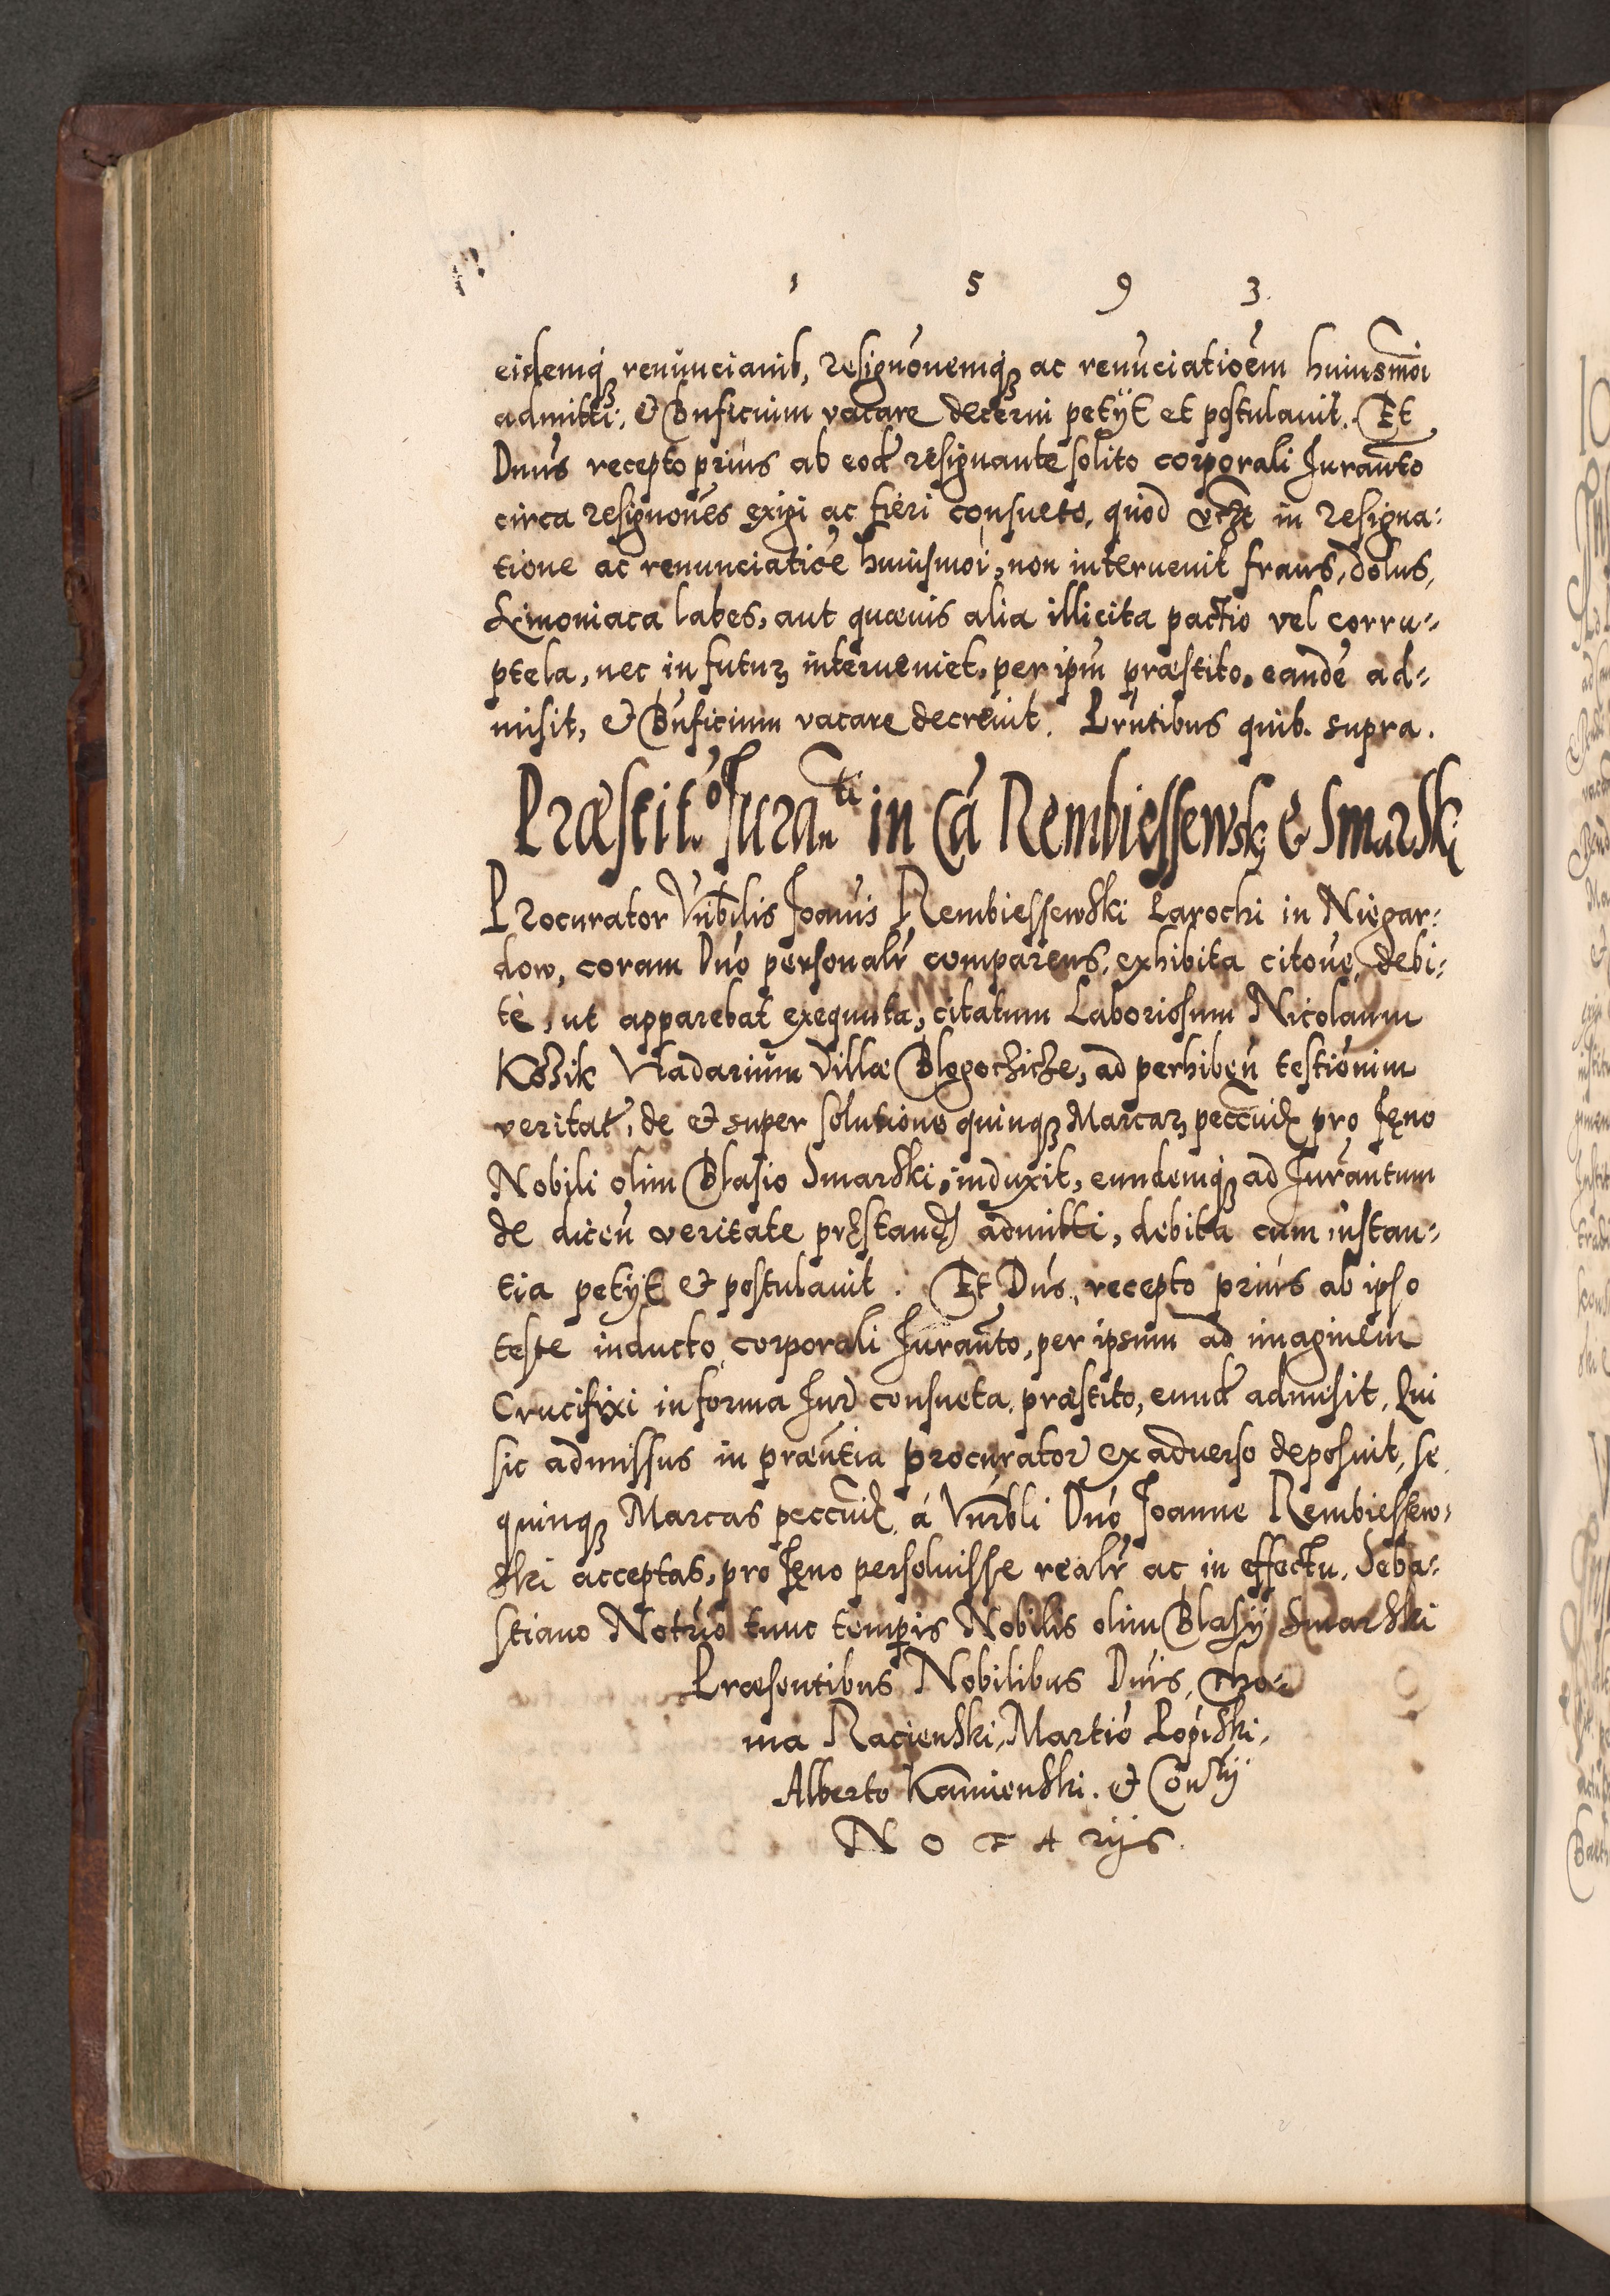 1 5 9 3.
eidemq́ꝫ renunciavit, resignõnemqꝫ ac renunciatiõem huiusmõi
admitti: & Bnficium vacare decerni petÿt et postulauit. Et
Dnus recepto prius ab eod̃ resignante solito corporali Juramto
circa resignões exigi ac fieri consueto, quod in resigna:
tione ac renunciatiõe huiusmõi, non interuenit fraus, dolus,
Simoniaca labes, aut quæuis alia illicita pactio vel corru-
ptela, nec in futuꝝ interueniet, per ipm̃ præstito, eandẽ ad-
misit, & Bnficium vacare decreuit. Prñtibus quib. supra.
Præstito Juramti in Cã Rembiessewskj & Smarskj
Procurator Vnbilis Joãnis Rembiessewski Parochi in Niegar:
dow, coram Dnõ personalr̃ comparens, exhibita citõne, debi:
tè, ut apparebat exequuta, citatum Laboriosum Nicolaum
Kozik Vladarium villæ Blogochicze, ad perhibeñ testiõnium
veritat̃, de & super solutione quinqꝫ Marcaꝝ pecc̃uũ pro fęno
Nobili olim Blasio Smarski, induxit, eundemqꝫ ad Jurãmtum
de diceñ veritate pręstand̃ admitti, debita cum instan-
tia petÿt & postulauit. Et Dñs, recepto prius ab ipso
teste inducto corporali Juramto, per ipsum ad imaginem
Crucifixi in forma Jur̃ consueta præstito, eund̃ admisit, Qui
sic admissus in præñtia procurator̃ ex aduerso deposuit, se
quinqꝫ Marcas pecc̃uũ à Vnrbli Dnõ Joanne Rembiessew-
ski acceptas, pro fęno persoluisse realr̃ ac in effectu, Seba:
stiano Notrio tunc tempis Nobilis olim Blasÿ Smarski
Præsentibus Nobilibus Dnis, Tho-
ma Racienski, Martiõ Lopiski,
Alberto Kamienski. &
NOTArijs.